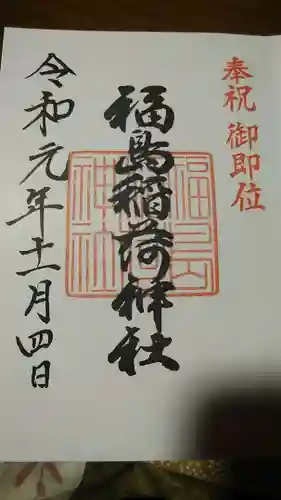 奉祝 御即位
福島稲荷神社
令和元年十一月四日
福島
神社